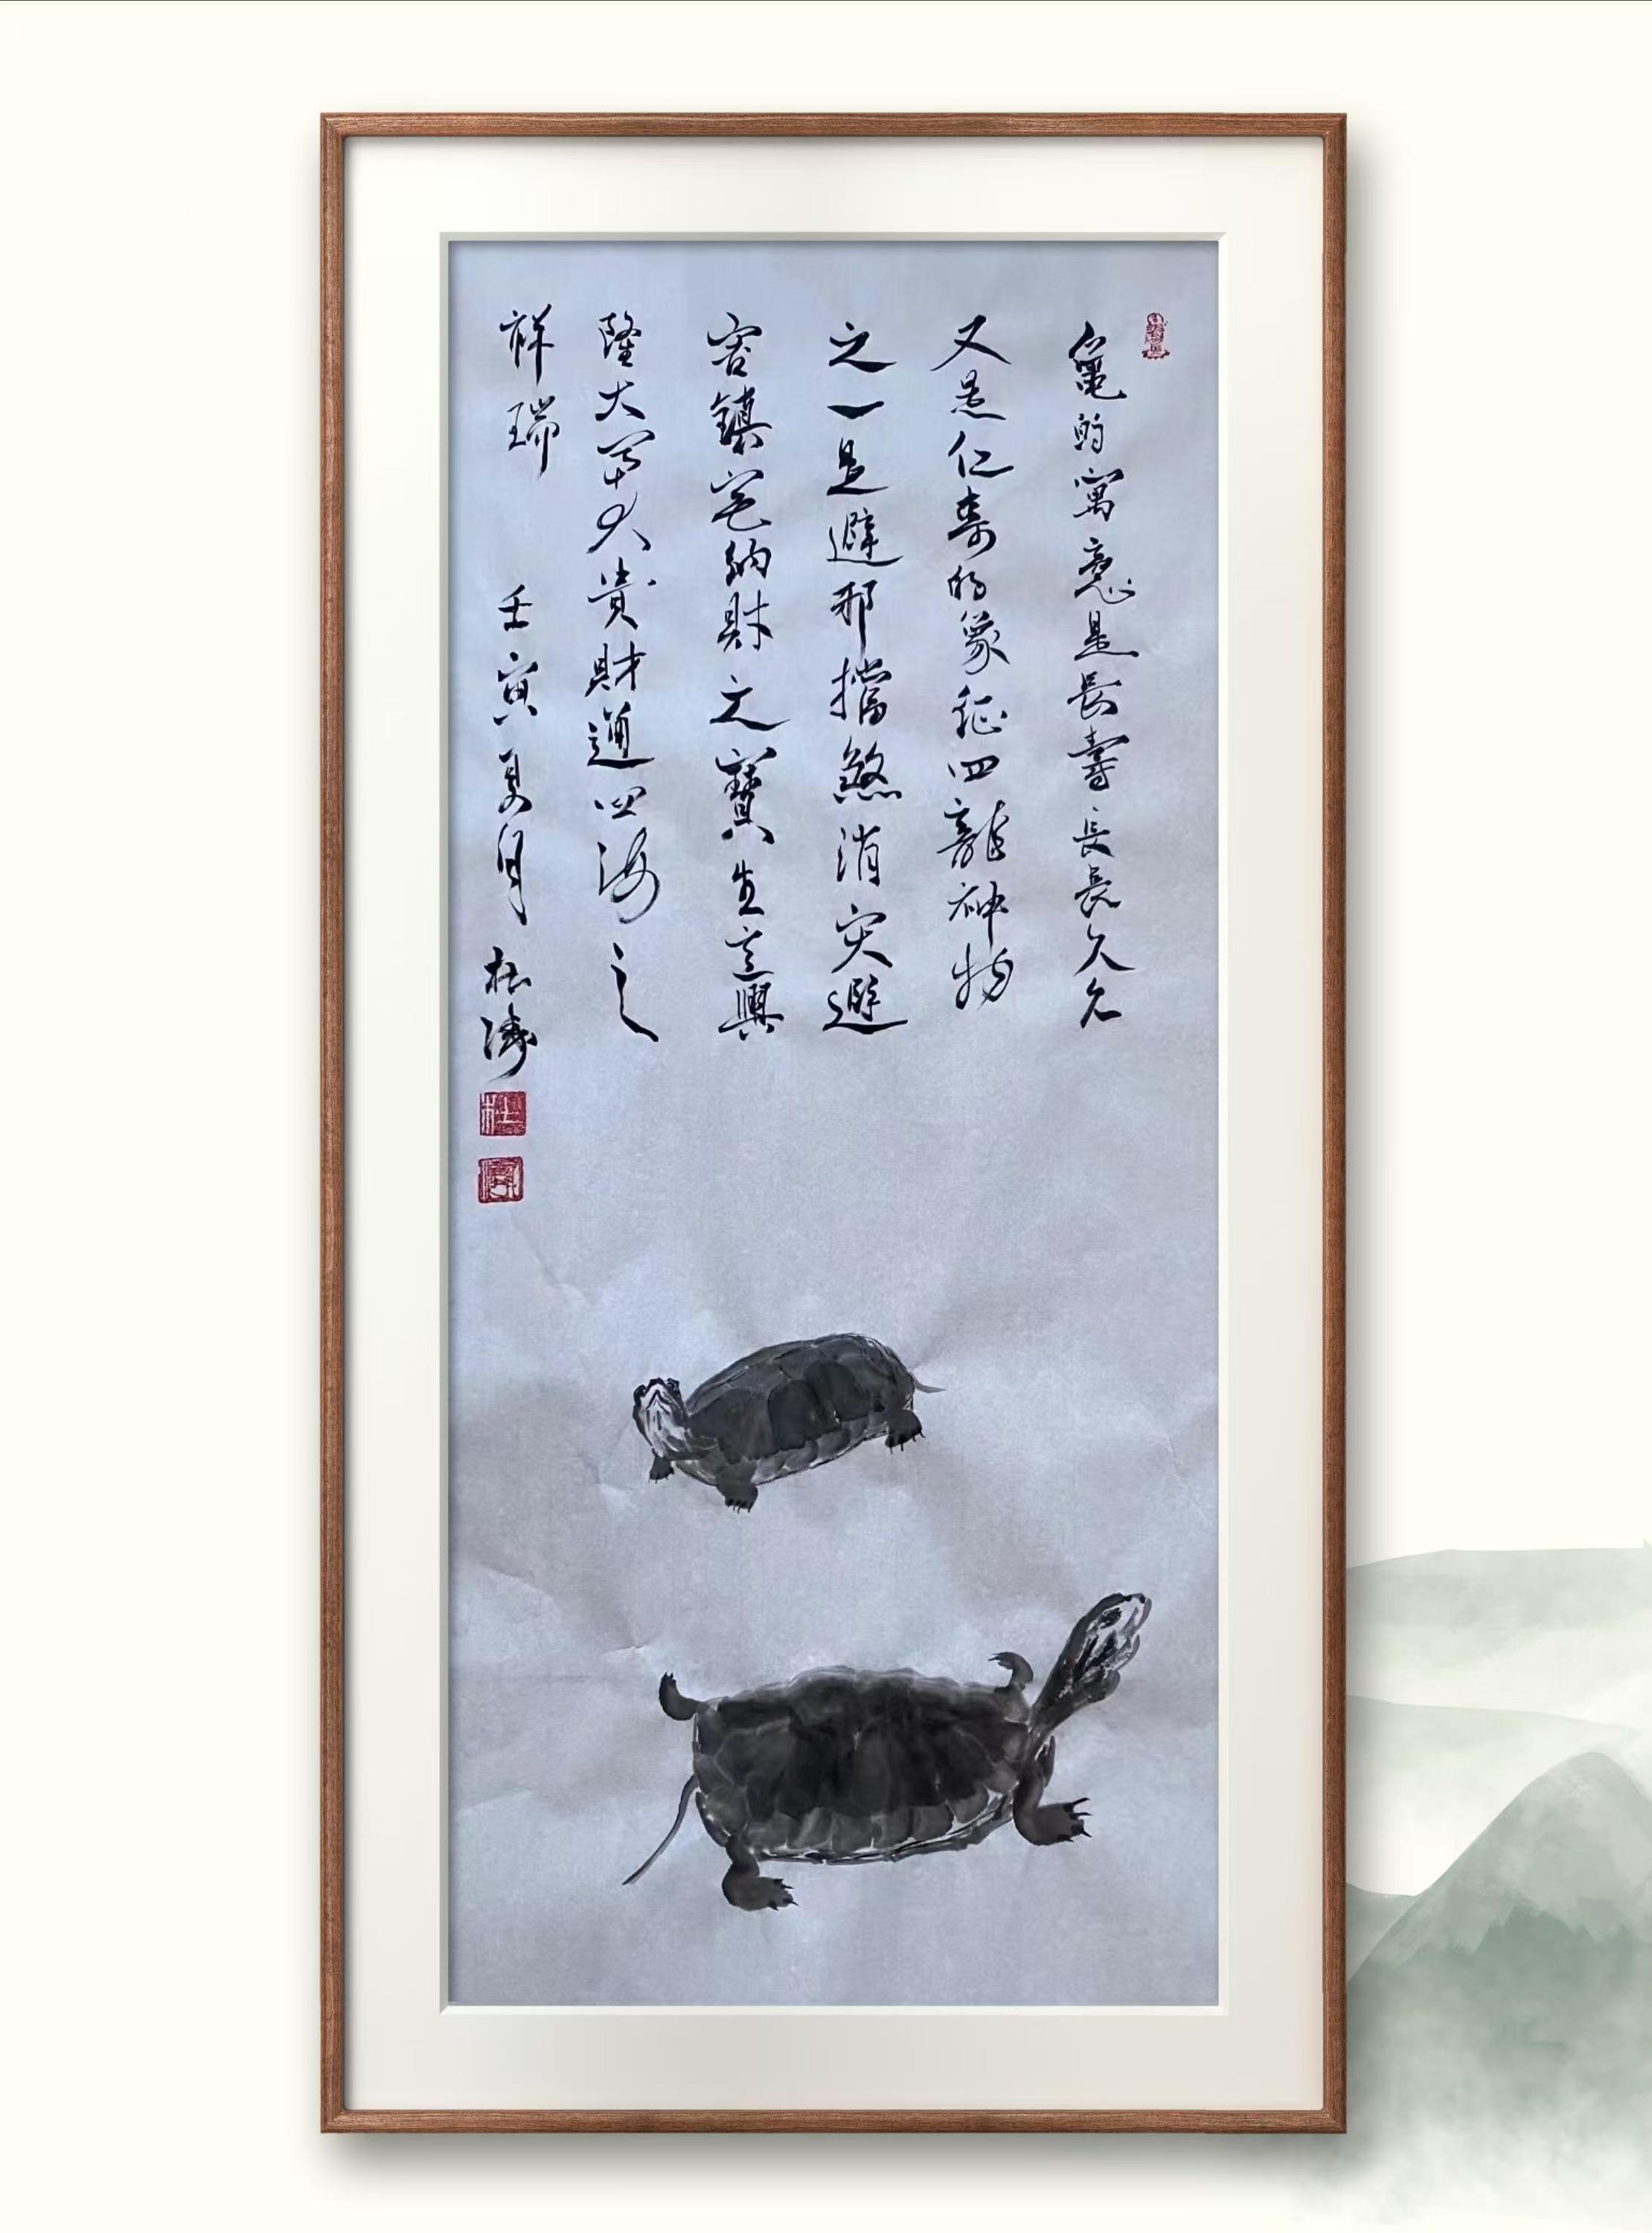 龜的寓意是長壽長長久久
又是仁壽的象征四龍神物
之一是避邪擋煞消灾避
害鎮宅納財之寶生意興
隆大富大貴財通四海之
祥瑞
壬寅夏月 杜濤
杜